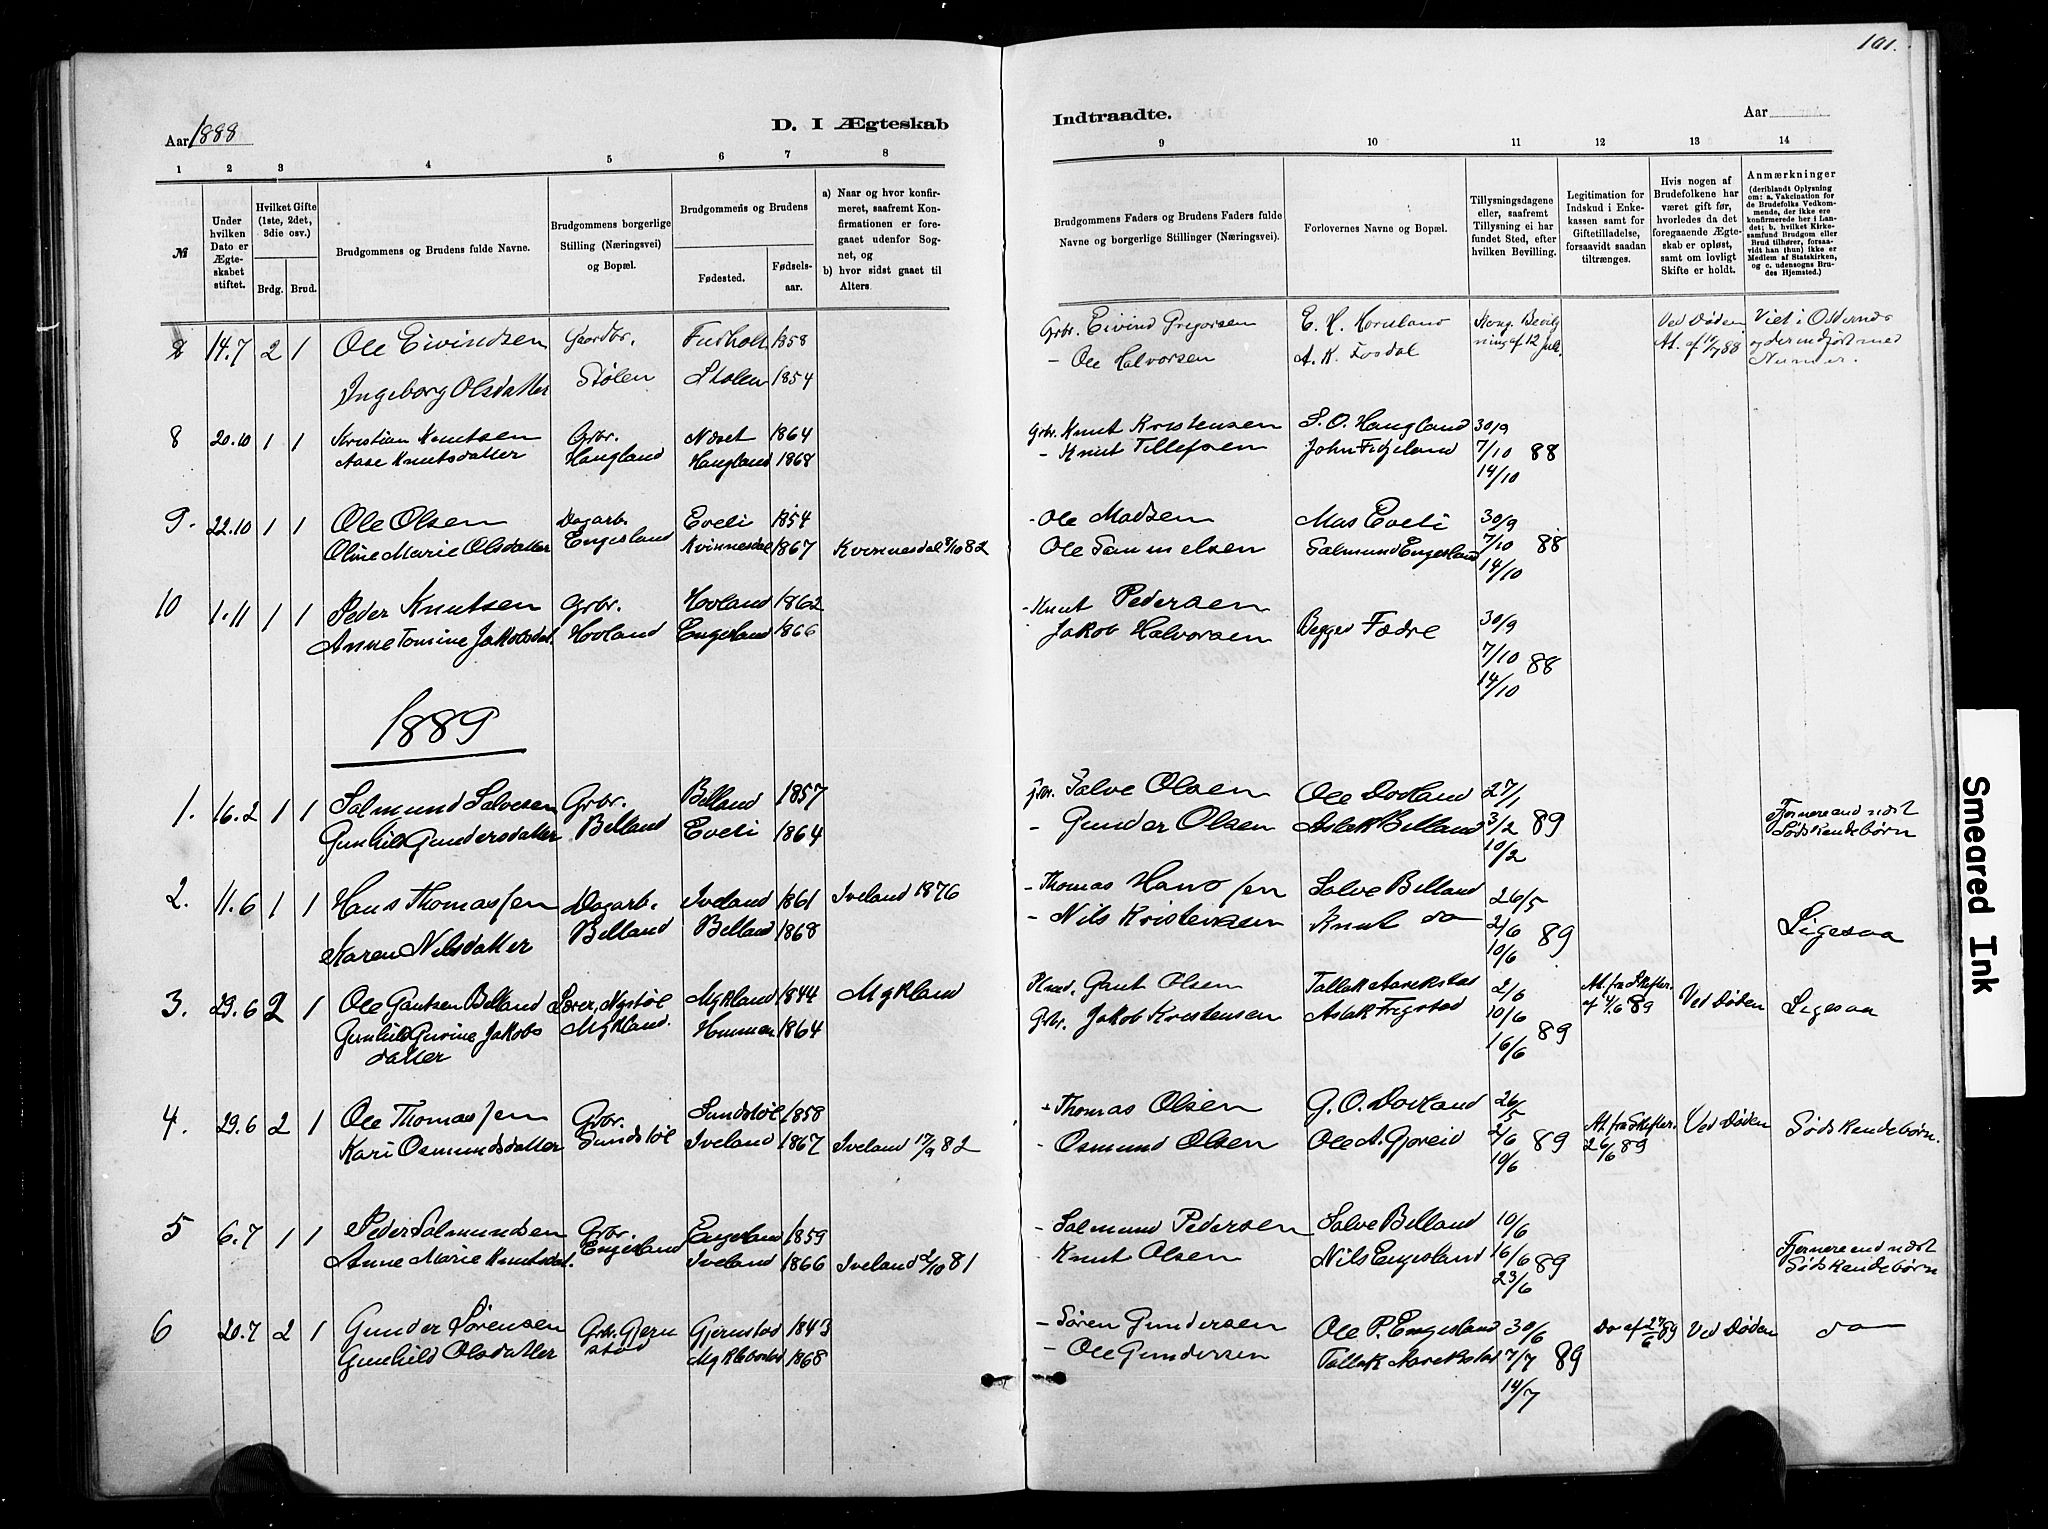 101.
Aar 1888
D. I Ægteskab
Indtraadte.
Aar
1 2 3 4 5 6 7 8 9 10 11 12 13 14
№
Under hvilken Dato er Ægteskabet stiftet.
Hvilket Gifte (1ste, 2det, 3die osv.)
Brdg. Brud.
Brudgommens og Brudens fulde Navne.
Brudgommens borgerlige Stilling (Næringsvei) og Bopæl.
Brudgommens og Brudens
Fødested. Fødselsaar.
a) Naar og hvor konfirmeret, saafremt Konfirmationen er foregaaet udenfor Sognet, og
b) hvor sidst gaaet til Alters.
Brudgommens Faders og Brudens Faders fulde Navne og borgerlige Stillinger (Næringsvei).
Forlovernes Navne og Bopæl.
Tillysningsdagene eller, saafremt Tillysning ei har fundet Sted, efter hvilken Bevilling.
Legitimation for Indskud i Enkekassen samt for Giftetilladelse, forsaavidt saadan tiltrænges.
Hvis nogen af Brudefolkene har været gift før, hvorledes da det foregaaende Ægteskab er opløst, samt om lovligt Skifte er holdt.
Anmærkninger
(deriblandt Oplysning om: a. Vakcination for de Brudefolks Vedkommende, der ikke ere konfirmerede her i Landet; b. hvilket Kirkesamfund Brudgom eller Brud tilhører, forsaavidt han (hun) ikke er Medlem af Statskirken, og c. udensogns Brudes Hjemsted.)
14.7 2 1 Ole Eivindsen Gaardbr. 1858 Grbr. Eivind Gregorsen E. H. Horneland Kong. Bevilg Ved Døden
Ingeborg Olsdatter Stølen Stølen 1854 - Ole Halvorsen A. K. Fosdal ning af 12 Juli. At. af 10/7 88
8 20.10 1 1 Kristian Knutsen Grbr. Næset 1864 Grbr. Knut Kristensen S. O. Haugland 30/9
Aase Knutsdatter Haugland Haugland 1868 - Knut Tellefsen 7/10 88
14/10
9. 22.10 1 1 Ole Olsen Dagarb. Eveti 1854 - Ole Madsen Mas Eveti 30/9
Oline Marie Olsdatter Engesland Kvinnesdal 1867 Kvinnesdal 8/10 82 Ole Samuelsen Salmund Engesland 7/10 88
14/10
10 1.11 1 1 Peder Knutsen Grbr. Hovland 1862 - Knut Pedersen
Anne Tomine Jakobsdat. Hovland Engesland 1866 Jakob Halvorsen Begges Fædre 30/9
7/10 88
14/10
1889
1. 16.2 1 1 Salmund Salvesen Grbr. Belland 1857 Grbr. Salve Olsen Ole Dovland 27/1
Gunhild Gundersdatter Belland Eveti 1864 - Gunder Olsen Aslak Belland 3/2 89 Fjernere end næst Sødskendebørn
10/2
2. 11.6 1 1 Hans Thomassen Dagarb. Iveland 1861 Iveland 1876 - Thomas Hanssen Salve Belland 26/5
Karen Nilsdatter Belland Belland 1868 - Nils Kristensen Knut do 2/6 89 Ligesaa
10/6
3. 29.6 2 1 Ole Gautsen Belland Lærer, Nystøl Mykland 1844 Mykland Gaut Olsen Tallak Aarekstad 2/6 At. fra Skifter. af 4/6 89 Ved Døden Ligesaa
Gunhild Gurine Jakobs Mykland. 1864 Grbr. Jakob Kristensen Aslak Frigstad 10/6 89
datter 16/6
4. 29.6 2 1 Ole Thomassen Grbr. Sundstøl 1858 - Thomas Olsen G. O. Dovland 26/5 At. fra Skifter. Ved Døden Sødskendebørn.
Kari Osmundsdatter Sundstøl Iveland 1867 Iveland 17/9 82 Osmund Olsen Ole A. Gjoreid 2/6 89 26/6 89
10/6
5 6.7 1 1 Peder Salmundsen Grbr. Engesland 1859 - Salmund Pedersen Salve Belland 10/6
Anne Marie Knutsdat. Engesland Iveland 1866 Iveland 2/10 81 - Knut Olsen Nils Engesland 16/6 89 Fjernere end næst Sødskendebørn
23/6
6 20.7 2 1 Gunder Sørensen Grbr. Gjern Gjernstad 1843 - Søren Gundersen Ole P. Engesland 30/6 Do af 27/6 89 Ved Døden do
Gunhild Olsdatter stad 1868 - Ole Gundersen Tallak Aarekstad 7/7 89
14/7
Smeared Ink